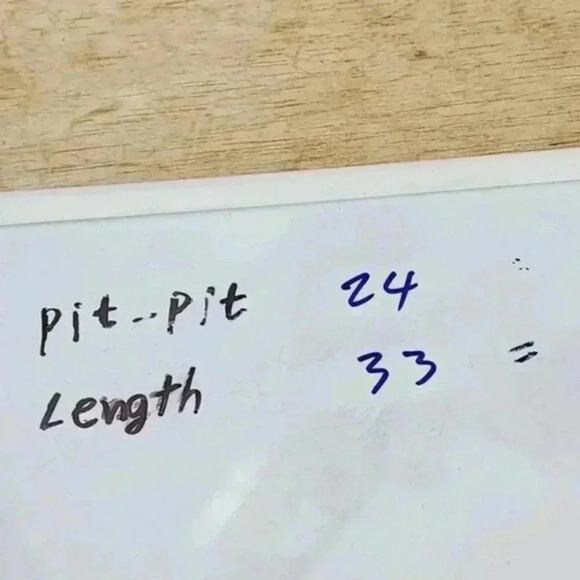 pit--pit 24
Length 33 =